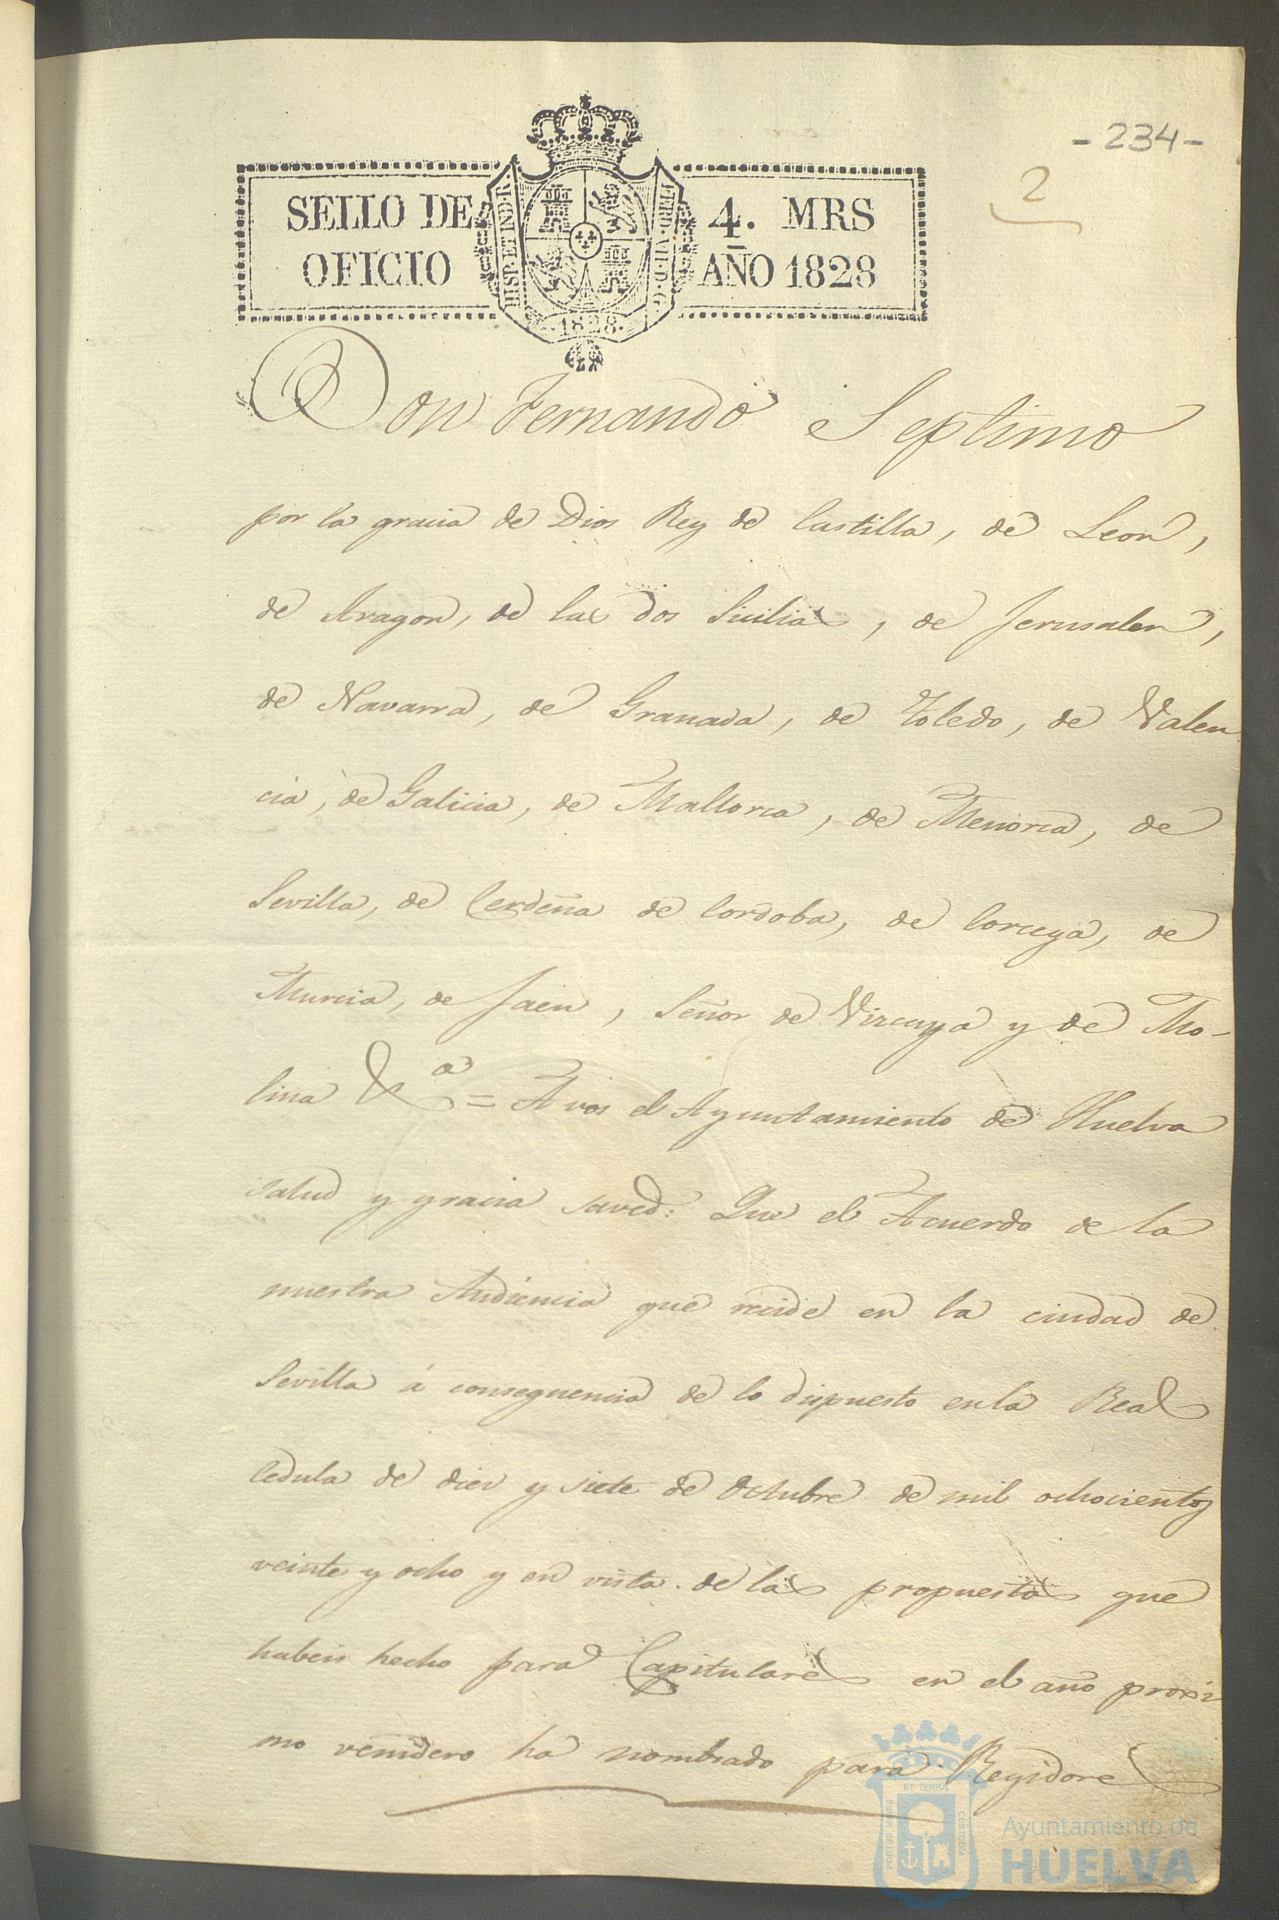 - 234 -
2
SELLO DE 4. MRS
OFICIO AÑO 1828
HISP. ET IND. R.
FERD. VII. D. G.
1828
Don Fernando Septimo
por la gracia de Dios Rey de Castilla, de Leon,
de Aragon, de las dos Sicilias, de Jerusalen,
de Navarra, de Granada, de Toledo, de Valen
cia, de Galicia, de Mallorca, de Menorca, de
Sevilla, de Cerdeña de Cordoba, de Corcega, de
Murcia, de Jaen, Señor de Vizcaya y de Mo-
lina &a = A vos el Ayuntamiento de Huelva
salud y gracia saved: Que el Acuerdo de la
nuestra Audiencia que recide en la ciudad de
Sevilla á consequencia de lo dispuesto en la Real
Cedula de diez y siete de Octubre de mil ochocientos
veinte y ocho y en vista de las propuestas que
habeis hecho para Capitulares en el año proxi
mo venidero ha nombrado para Regidores
PORTUS MARIS ET TERRAE CUSTODIA
Ayuntamiento de
HUELVA